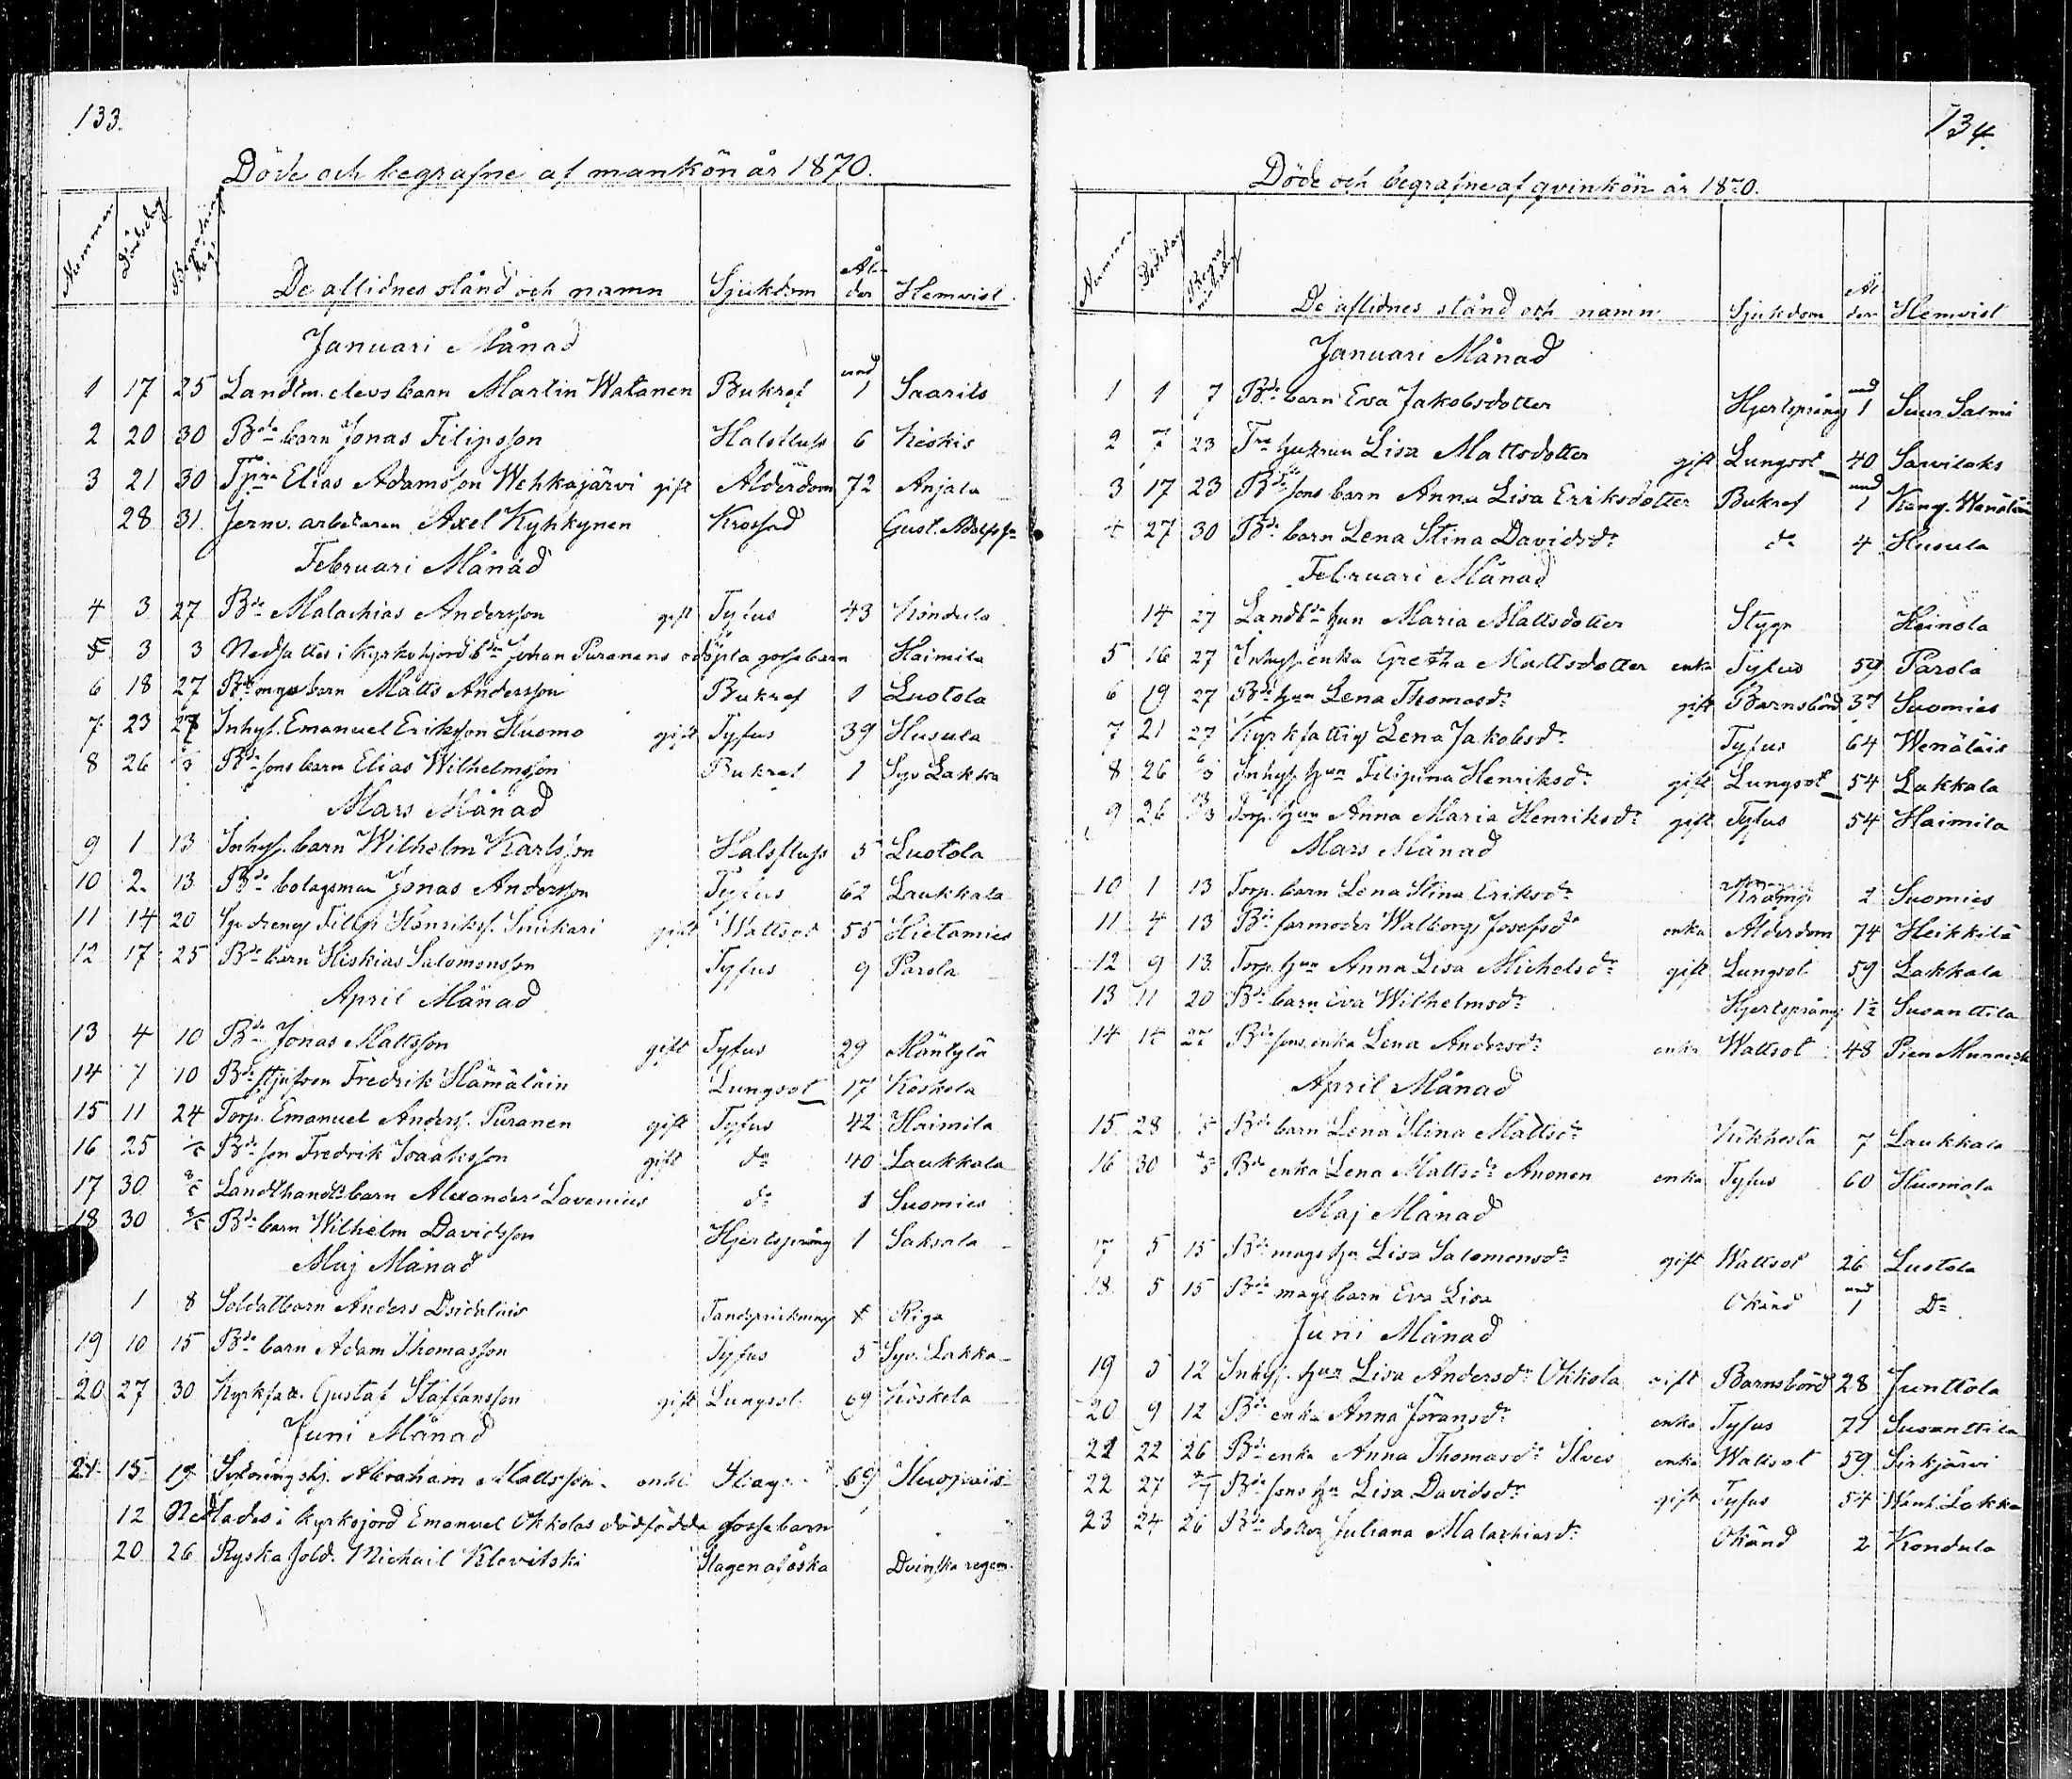 133.
Döde och begrafne af mankön år 1870.
Nummer Dödsdag Begrafnings dag De aflidnes stånd och namn Sjukdom Ålder Hemvist
Januari Månad
1 17 25 Landtm. elevs barn Martin Watanen Bukref und 1 Saarits
2 20 30 Bde barn Jonas Filipsson Halsfluss 6 Keskis
3 21 30 Elias Adamsson Wehkajärvi gift Ålderdom 72 Anjala
28 31 Jernv. arbetaren Axel Kyhkynen Krossad Gust. Adolfs
Februari Månad
4 3 27 Bde Malachias Andersson gift Tyfus 43 Kondula
5 3 3 Nedsattes i kyrkojord bdn Johan Puranens odöpta gossebarn Haimila
6 18 27 barn Matts Andersson Bukref 1 Luotola
7 23 27 Inhys. Emanuel Eriksson Huomo gift Tyfus 39 Husula
8 26 Bde sons barn Elias Wilhelmsson Bukref 1 Syv. Lakka
Mars Månad
9 1 13 Inhys. barn Wilhelm Karlsson Halsfluss 5 Luotola
10 2 13 Bde bolagsman Jonas Andersson Tyfus 62 Laukkala
11 14 20 dreng Filip Henrikss. Suikari gift Wattsot 55 Hietamies
12 17 25 Bde barn Hiskias Salomonsson Tyfus 9 Parola
April Månad
13 4 10 Bde Jonas Mattsson gift Tyfus 29 Mäntylä
14 7 10 Bde styfson Fredrik Hämäläin Lungsot 17 Koskela
15 11 24 Torp. Emanuel Anderss. Puranen gift Tyfus 42 Haimila
16 25 Bde son Fredrik Isaaksson gift do 40 Laukkala
17 30 Landthandl. barn Alexander Lavenius do 1 Suomies
18 30 Bde barn Wilhelm Davidsson Hjertsprång 1 Saksala
Maj Månad
1 8 Soldatbarn Anders Tandsprickning Riga
19 10 15 Bde barn Adam Thomasson Tyfus 5 Syv. Lakka
20 27 30 Kyrkfatt. Gustaf Staffansson gift Lungsot 69 Koskela
Juni Månad
21 15 19 Abraham Mattsson enkl. 69 Huopais
12 Nedlades i kyrkojord Emanuel Okkolas dödfödda gossebarn
20 26 Ryska sold. Michail Klevitski Slagen af åska Dvinska regem.
134.
Döde och begrafne af qvinkön år 1870.
Nummer Dödsdag Begrafningsdag De aflidnes stånd och namn Sjukdom Ålder Hemvist
Januari Månad
1 1 7 Bde barn Eva Jakobsdotter Hjertsprång und 1 Suur Salmi
2 7 23 hustrun Lisa Mattsdotter gift Lungsot 40 Sarvilaks
3 17 23 Bde sons barn Anna Lisa Eriksdotter Bukref und 1 Kang. Wenäläin
4 27 30 Bde barn Lena Stina Davidsdr do 4 Husula
Februari Månad
14 27 Landbde hun Maria Mattsdotter Stygn Heinola
5 16 27 Inhys. enka Gretha Mattsdotter enka Tyfus 59 Parola
6 19 27 Bde hun Lena Thomasdr gift Barnsbörd 37 Suomies
7 21 27 Kyrkfattig Lena Jakobsdr Tyfus 64 Wenäläis
8 26 6/3 Inhys. hun Filipina Henriksdr gift Lungsot 54 Lakkala
9 26 13/3 Torp. hun Anna Maria Henriksdr gift Tyfus 54 Haimila
Mars Månad
10 1 13 Torp. barn Lena Stina Eriksdr Kramp 2 Suomies
11 4 13 Bde farmoder Walborg Josefsdr enka Ålderdom 74 Heikkilä
12 9 13 Torp. hun Anna Lisa Michelsdr gift Lungsot 59 Lakkala
13 11 20 Bde barn Eva Wilhelmsdr Hjertsprång 1½ Susanttila
14 14 27 Bde sons enka Lena Andersdr enka Wattsot 48 Pien
April Månad
15 28 Bde barn Lena Stina Mattsdr Kikhosta 7 Laukkala
16 30 Bde enka Lena Mattsdr Anonen enka Tyfus 60 Huomola
Maj Månad
17 5 15 Bde mågs hu Lisa Salomonsdr gift Wattsot 26 Luotola
18 5 15 Bde mågs barn Eva Lisa Okänd und 1 Do
Juni Månad
19 5 12 Inhys. hun Lisa Andersdr Okkola gift Barnsbörd 28 Junttola
20 9 12 Bde enka Anna Göransdr enka Tyfus 71 Susanttila
21 22 26 Bde enka Anna Thomasdr Ilves enka Wattsot 59 Sirkjärvi
22 27 Bde sons hu Lisa Davidsdr gift Tyfus 54 Lakka
23 24 26 Bde dotter Juliana Malachiasdr Okänd 2 Kondula